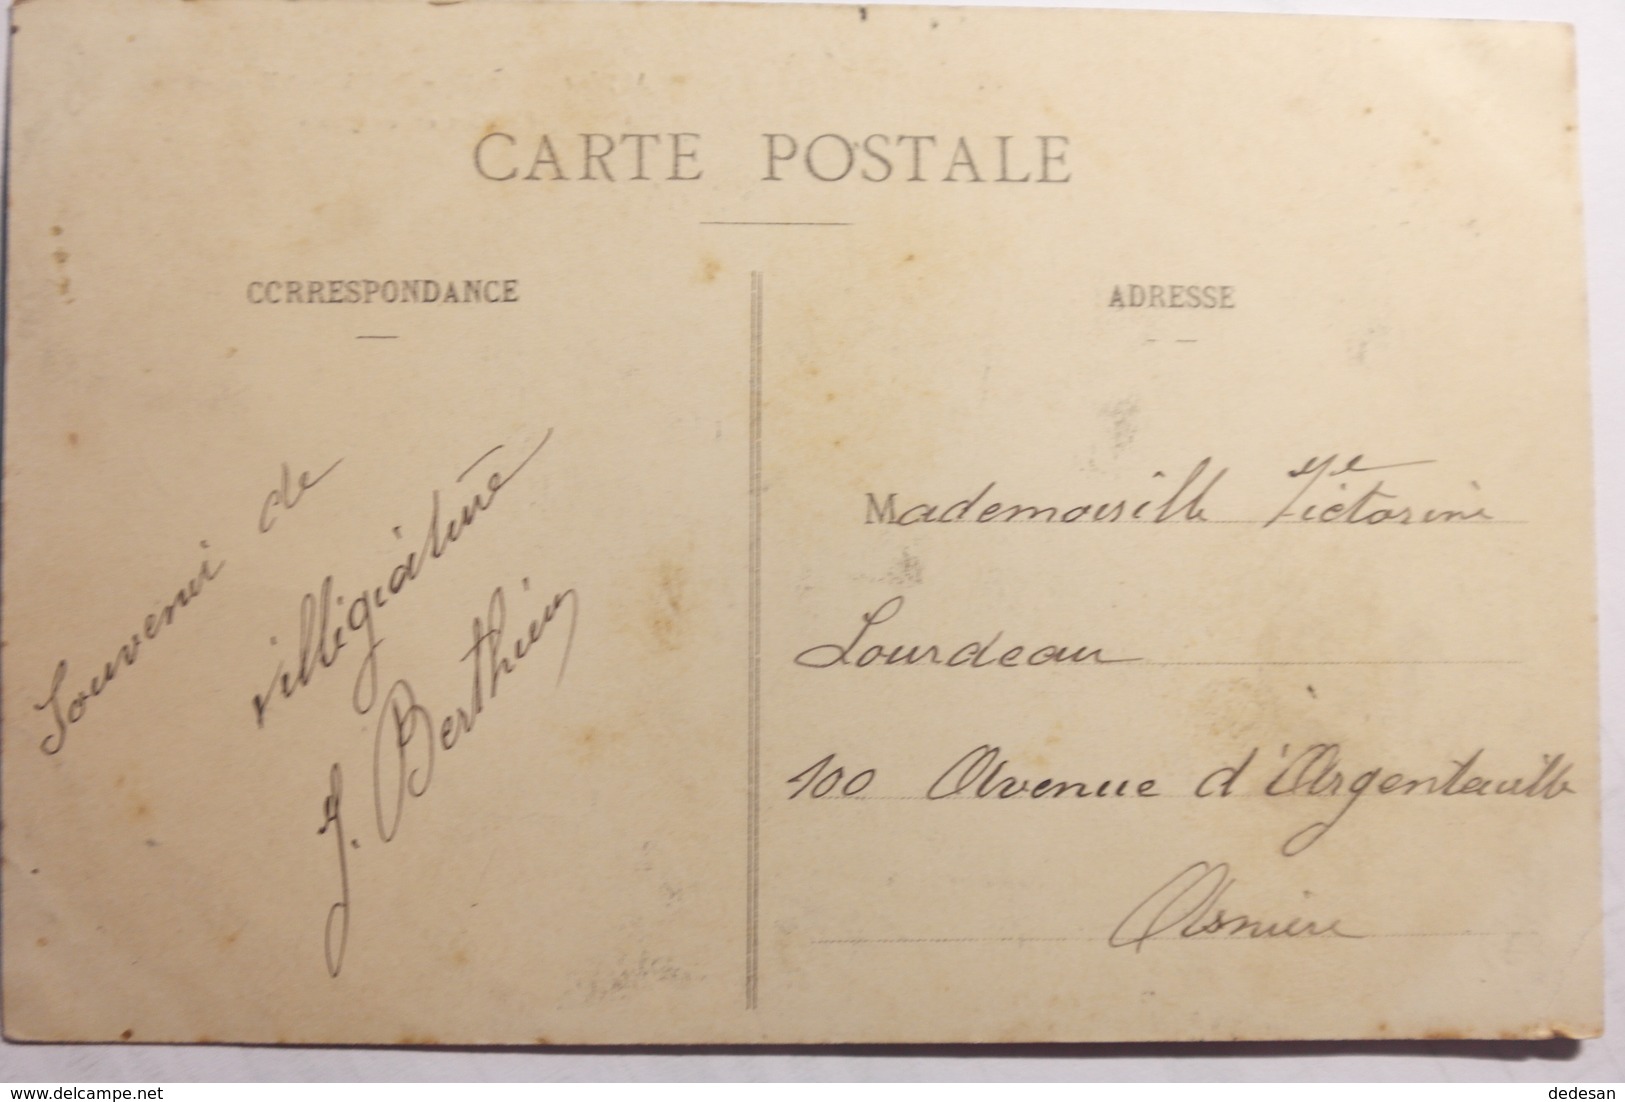 CARTE POSTALE
CORRESPONDANCE
Souvenir de
villégiature
J. Berthieu
ADRESSE
Mademoiselle Victorine
Lourdeau
100 Avenue d'Argenteuille
Asnière
delcampe.net
dedesan